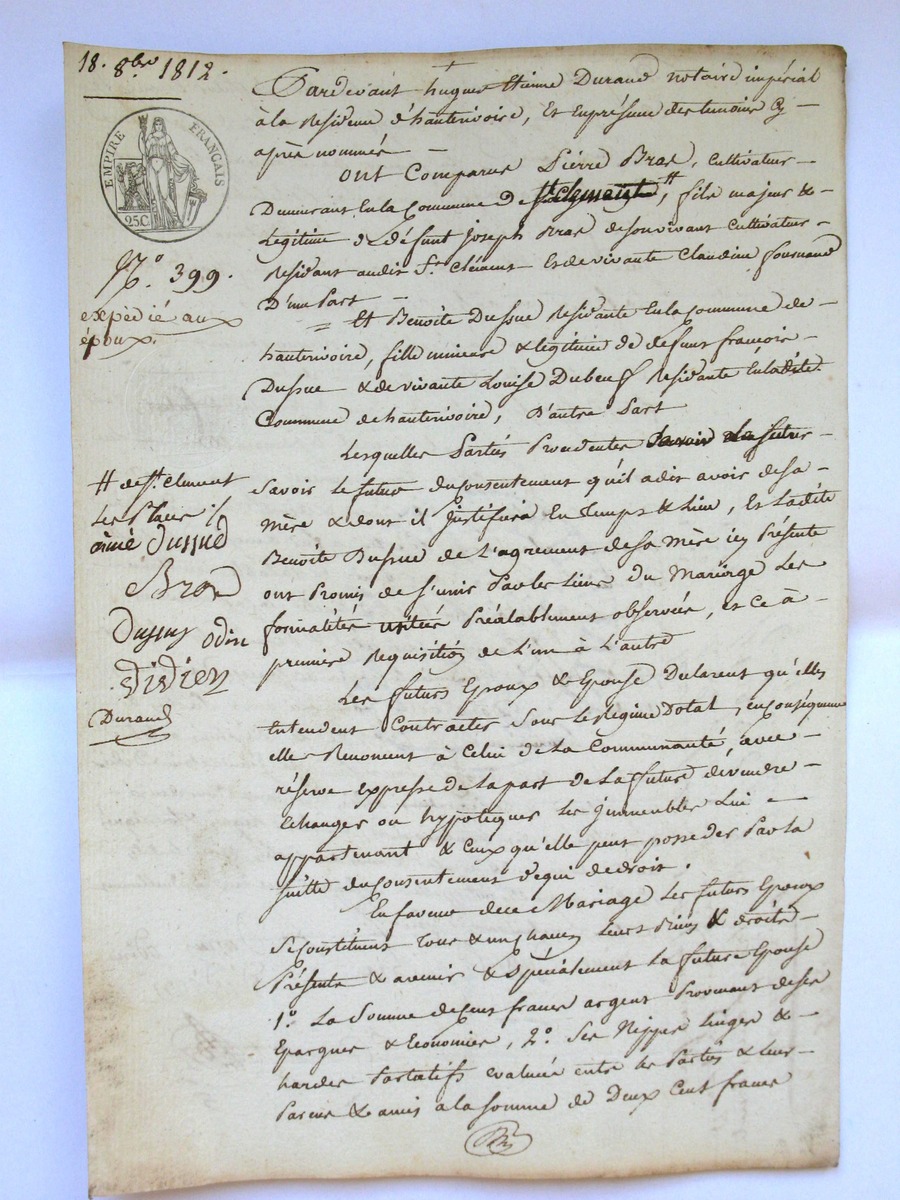 18. 8bre 1812.
EMPIRE FRANÇAIS
25C
N.o 399.
expédié aux
époux.
Pardevant hugues Etienne Durand notaire impérial
à la Residence d'hauterivoire, Et En présence des temoins Cy
après nommés
ont Comparus Pierre Bras, Cultivateur
Demeurant En la Commune de St Clément #, fils majeur &
Legitime de défunt Joseph Bras de son vivant Cultivateur
Residant audit St. Clément Et de vivante Claudine fournand
D'une Part
= Et Benoite Dussue Residante En la Commune de
hauterivoire, fille mineure & légitime de defunt françois
Dussue & de vivante Louise Dubeuf Residante En ladite
Commune de hauterivoire, D'autre Part
Lesquelles Parties Procedantes Savoir Le futur
Savoir Le futur du Consentement qu'il a dit avoir de sa
mère & dont il Justifiera En Temps & Lieu, Et Ladite
Benoite Dussue de L'agrement de sa mère icy Présente
ont Promis de S'unir Par les Liens du Mariage Les
formalités usitées Préalablement observées, et Ce à
premiere Requisition de L'un à L'autre
Les futurs Epoux & Epouse Declarent qu'elles
Entendent Contracter Sous Le Regime Dotal, en Conséquence
elles Renoncent à Celui de La Communauté, avec
réserve Expresse de la part de La future de vendre
Echanger ou hypotequer Les Immeubles Lui
appartenant & Ceux qu'elle peut posseder Par la
suitte du Consentement de qui de droit.
En faveur de ce Mariage Les futurs Epoux
Se Constituent Tous & un chacun Leurs Biens & droits
Présents & avenir & Spécialement La future Epouse
1.o La Somme de Cent francs argent Provenant de ses
Epargnes & Economies, 2.o Ses Nippes Linges &
hardes Portatifs evalués entre les Parties & Leurs
Parens & amis a la somme de Deux Cent francs
# de St. Clément
aimé Dussud
Bras
Dussus odin
Didien
Durand